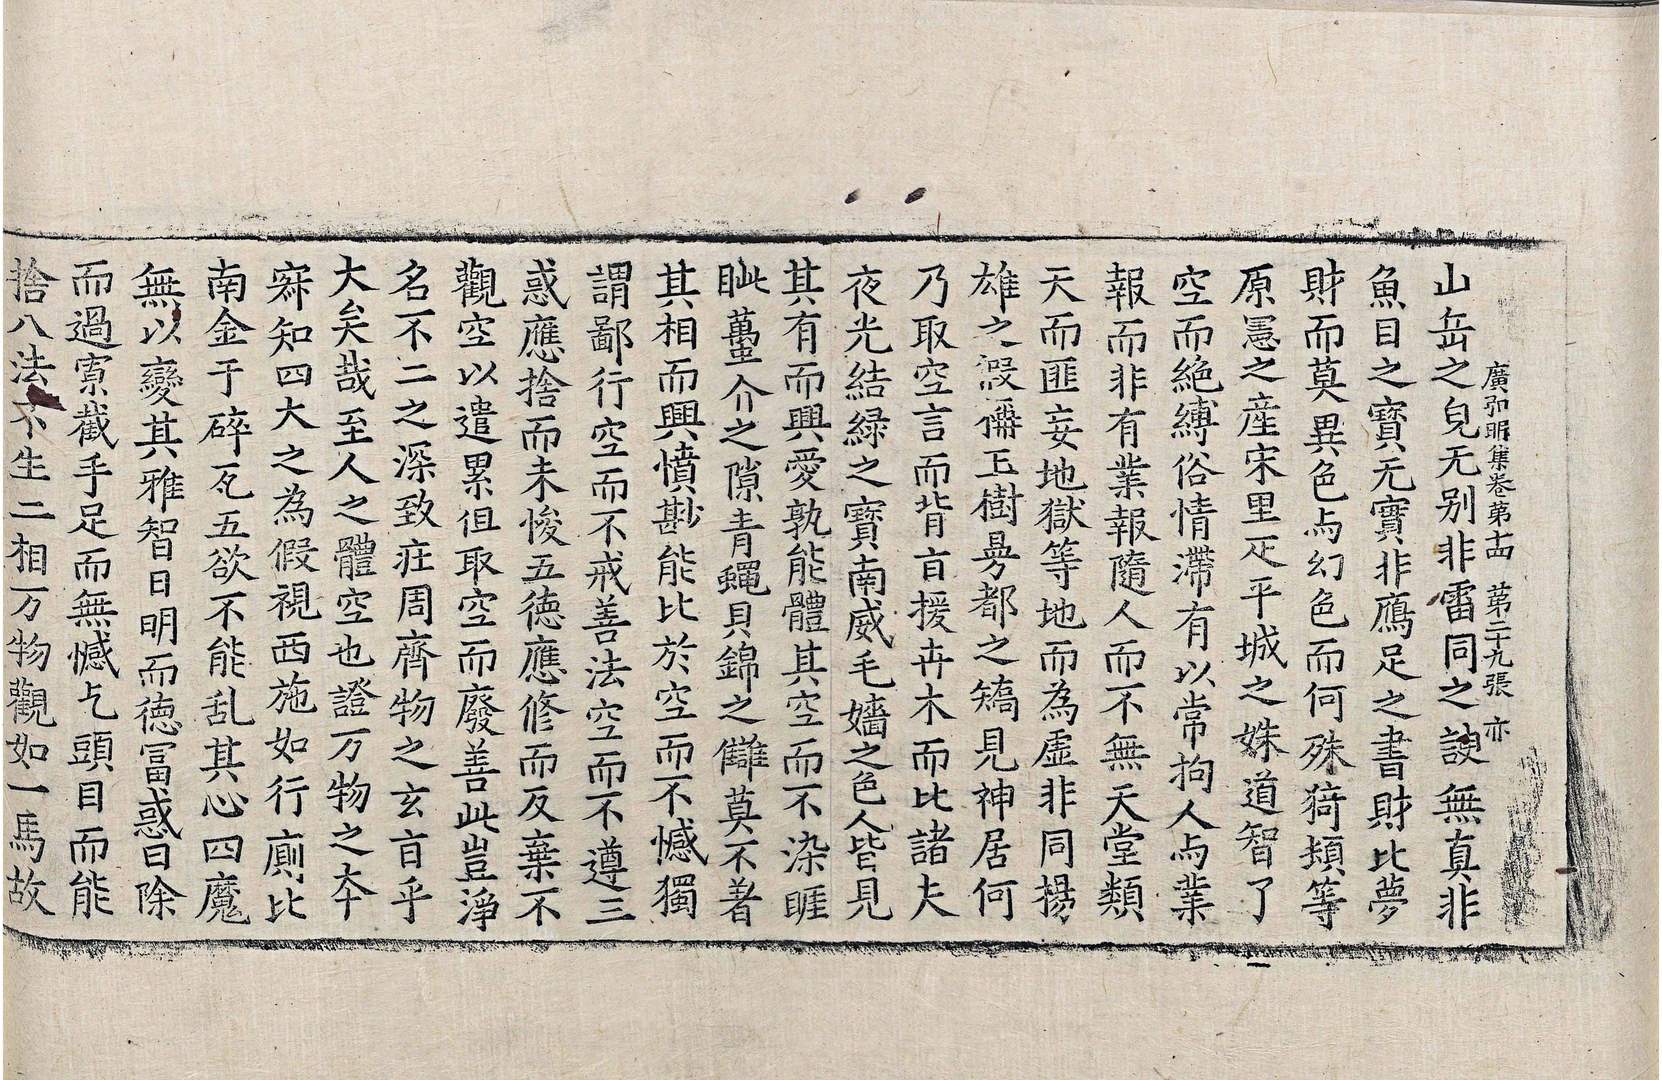 廣弘明集卷第十四　第二十九張　亦
山岳之皃无別非雷同之諛無真非
魚目之寶无實非鴈足之書財比夢
財而莫異色与幻色而何殊猗頓等
原憲之產宋里疋平城之姝道智了
空而絶縛俗情滯有以常拘人与業
報而非有業報隨人而不無天堂類
天而匪妄地獄等地而為虛非同揚
雄之假稱玉樹异都之矯見神居何
乃取空言而背旨援卉木而比諸夫
夜光結緑之寶南威毛嬙之色人皆見
其有而興愛孰能體其空而不染睚
眦蠆介之隙青蠅貝錦之讎莫不著
其相而興憤尠能比於空而不憾獨
謂鄙行空而不戒善法空而不遵三
惑應捨而未悛五德應修而反棄不
觀空以遣累但取空而廢善此豈淨
名不二之深致莊周齊物之玄旨乎
大矣哉至人之體空也證万物之本
寂知四大之為假視西施如行廁比
南金于碎瓦五欲不能乱其心四魔
無以變其雅智日明而德冨惑日除
而過寡截手足而無憾乞頭目而能
捨八法不生二相万物觀如一馬故